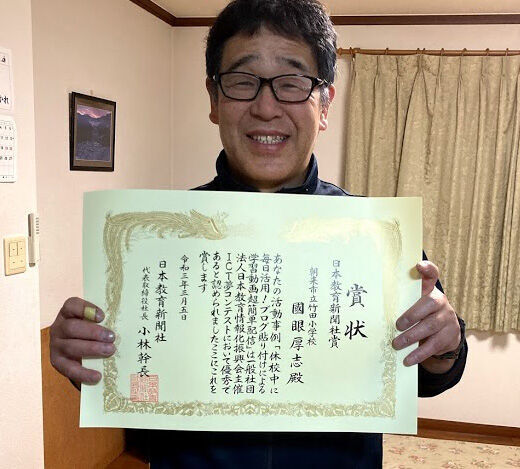 賞状
日本教育新聞社賞
朝来市立竹田小学校
國眼厚志殿
あなたの活動事例「休校中に
毎日活用！ブログ貼り付けによる
学習動画超簡単配信」は一般社団
法人日本教育情報化振興会主催
ICT夢コンテストにおいて優秀で
あると認められましたここにこれを
賞します
令和三年三月五日
日本教育新聞社
代表取締役社長 小林幹長